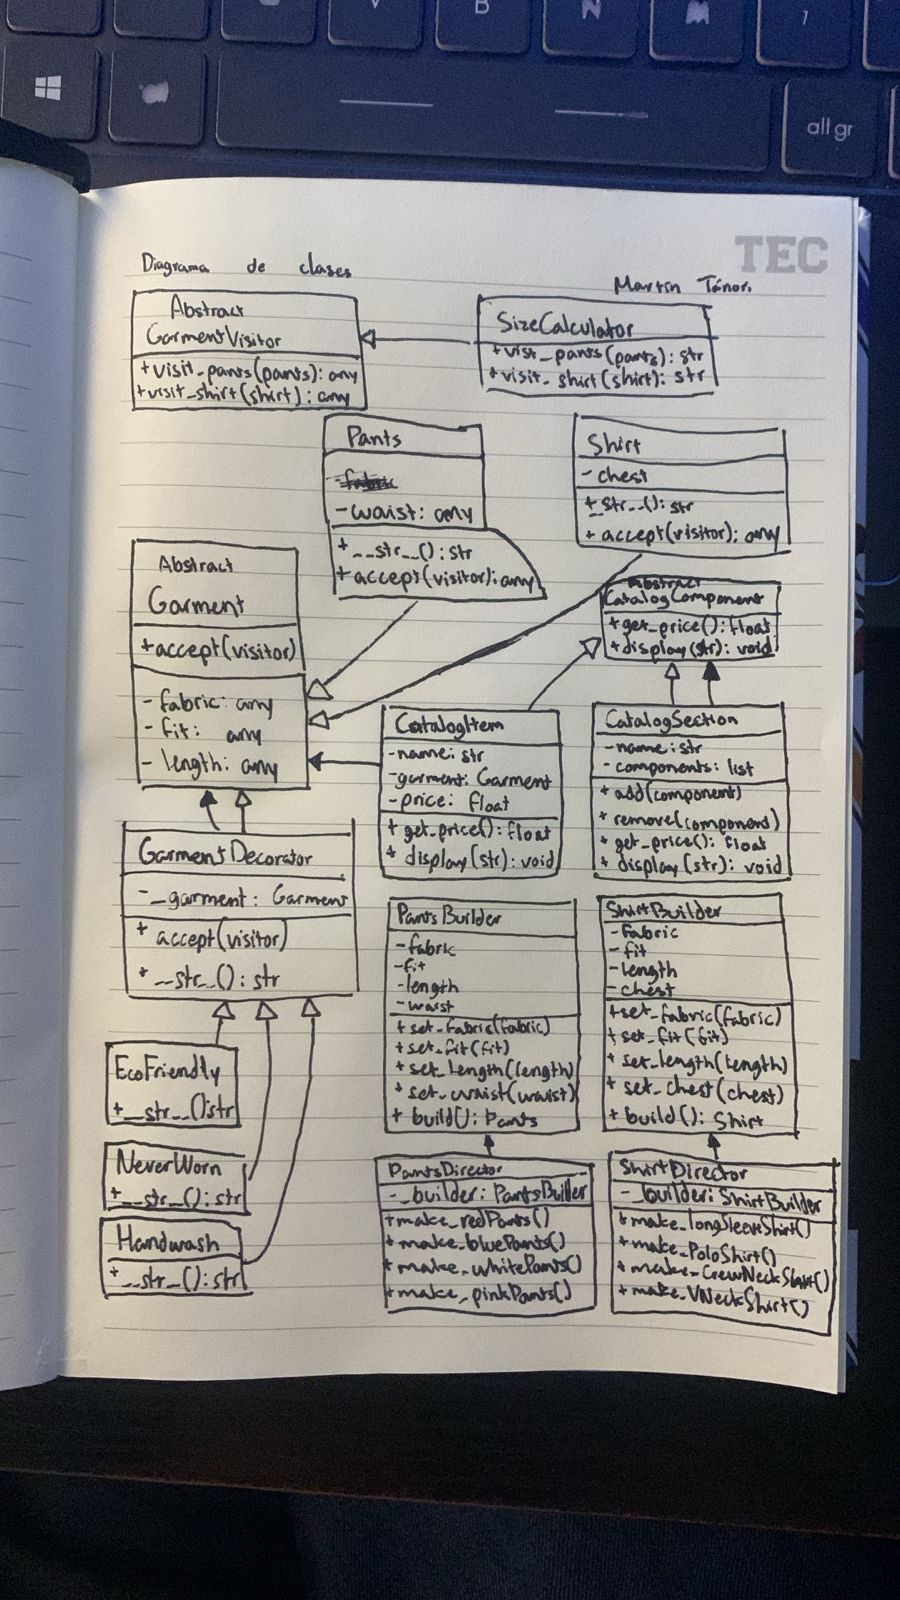 V
B
N
M
all gr
TEC
Diagrama de clases
Martín Tánori
Abstract
GarmentVisitor
+visit_pants(pants): any
+visit_shirt(shirt): any
SizeCalculator
+visit_pants(pants): str
+visit_shirt(shirt): str
Pants
- waist: any
+__str__(): str
+accept(visitor): any
Shirt
- chest
+_str__(): str
+ accept(visitor): any
Abstract
Garment
+accept(visitor)
- fabric: any
- fit: any
- length: any
Abstract
CatalogComponent
+get_price(): float
+display(str): void
CatalogItem
-name: str
-garment: Garment
-price: float
+ get_price(): float
+ display(str): void
CatalogSection
-name: str
- components: list
+ add(component)
+ remove(component)
+ get_price(): float
+ display(str): void
GarmentDecorator
-_garment: Garment
+ accept(visitor)
+ __str__(): str
PantsBuilder
-fabric
-fit
-length
-waist
+set_fabric(fabric)
+set_fit(fit)
+set_length(length)
+set_waist(waist)
+ build(): Pants
ShirtBuilder
-Fabric
-fit
-length
-chest
+set_fabric(fabric)
+set_fit(fit)
+set_length(length)
+ set_chest(chest)
+ build(): Shirt
EcoFriendly
+__str__():str
NeverWorn
+__str__(): str
Handwash
+__str__(): str
PantsDirector
-_builder: PantsBuilder
+make_redPants()
+make_bluePants()
+make_whitePants()
+make_pinkPants()
ShirtDirector
-_builder: ShirtBuilder
+make_longSleeveShirt()
+make_PoloShirt()
+make_CrewNeckShirt()
+make_VNeckShirt()